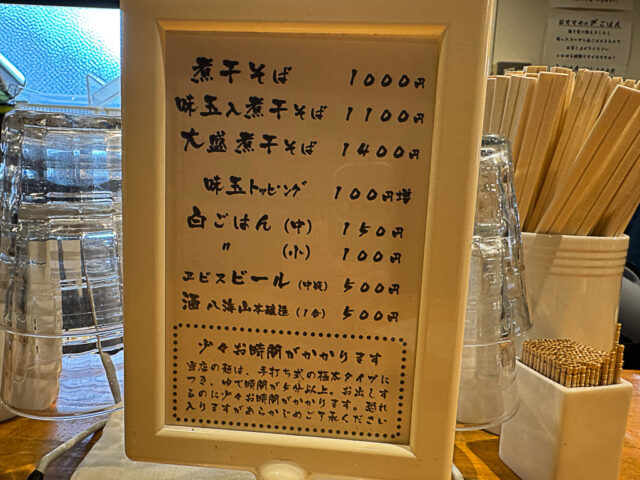 煮干そば 1000円
味玉入煮干そば 1100円
大盛煮干そば 1400円
味玉トッピング 100円増
白ごはん(中) 150円
〃 (小) 100円
ヱビスビール(中瓶) 500円
酒 八海山本醸造(1合) 500円
少々お時間がかかります
当店の麺は、手打ち式の極太タイプに
つき、ゆで時間が5分以上。お出しす
るのに少々お時間がかかります。恐れ
入りますがあらかじめご了承ください
おすすめの〆ごはん